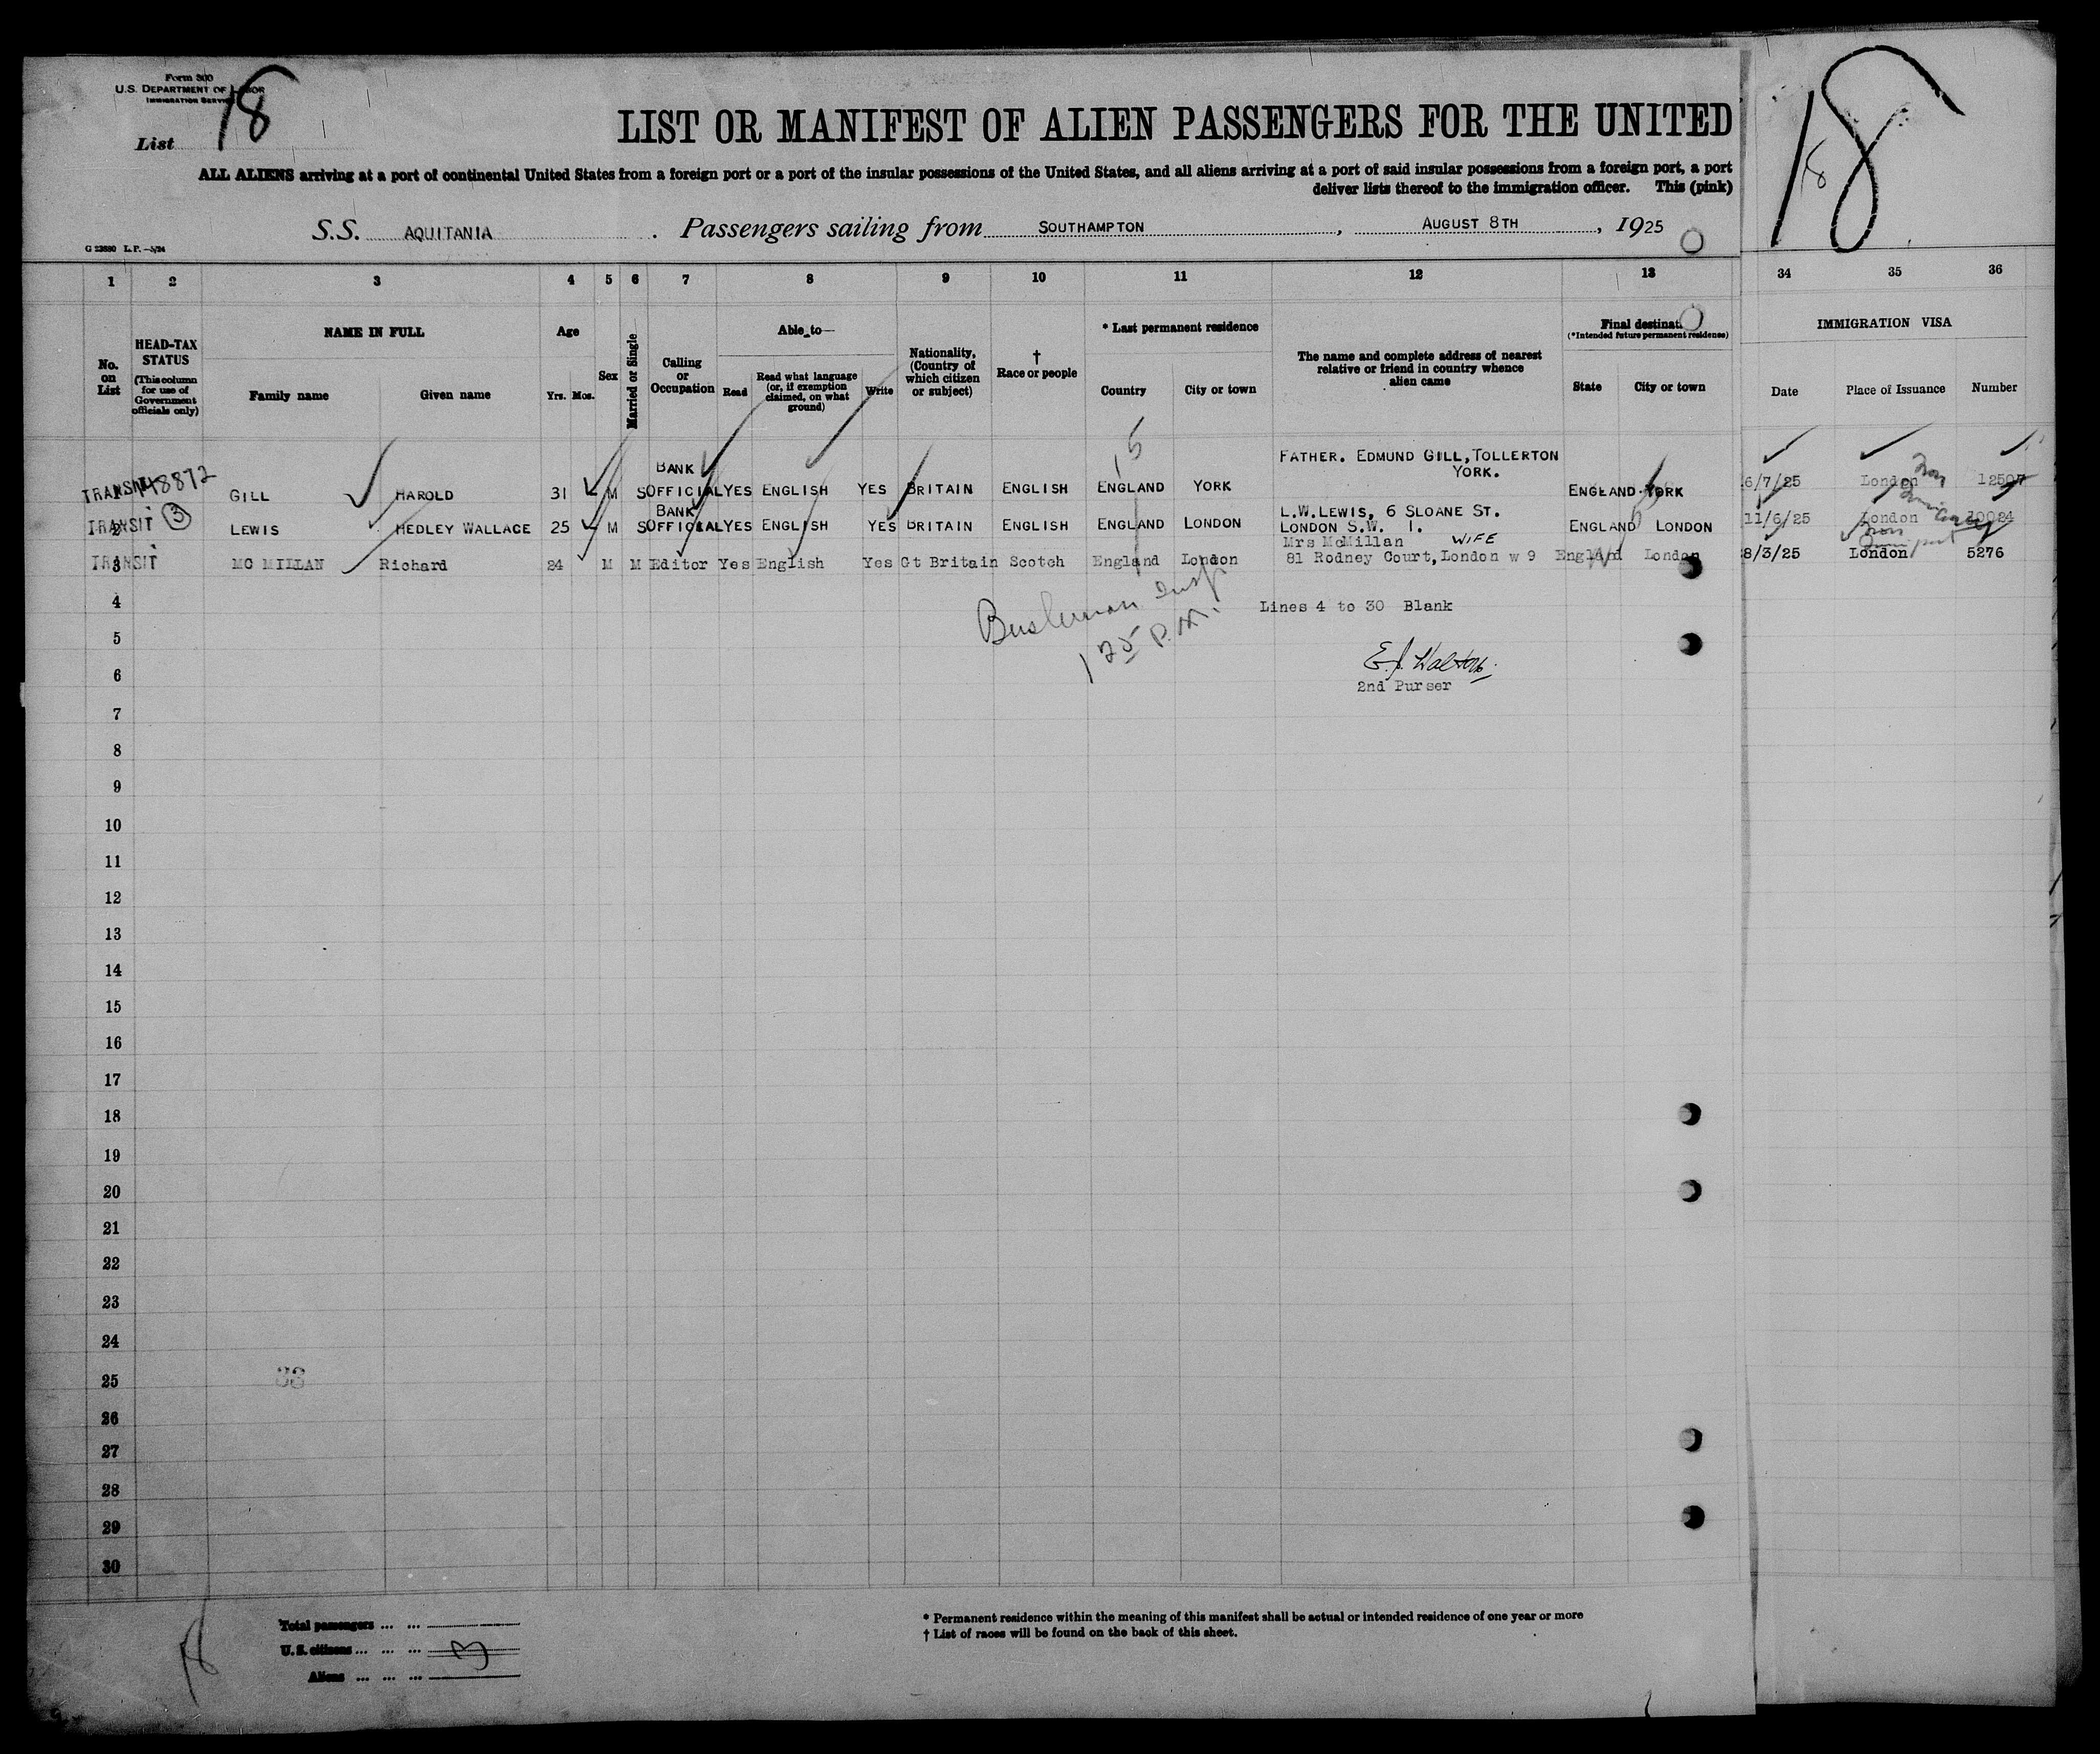 Form 500
U.S. DEPARTMENT OF LABOR
IMMIGRATION SERVICE
List 18
18
18
LIST OR MANIFEST OF ALIEN PASSENGERS FOR THE UNITED
ALL ALIENS arriving at a port of continental United States from a foreign port or a port of the insular possessions of the United States, and all aliens arriving at a port of said insular possessions from a foreign port, a port
deliver lists thereof to the immigration officer. This (pink)
S.S. AQUITANIA . Passengers sailing from SOUTHAMPTON , AUGUST 8TH , 1925
1 2 3 4 5 6 7 8 9 10 11 12 13 34 35 36
No. on List
HEAD-TAX STATUS (This column for use of Government officials only)
NAME IN FULL
Family name Given name
Age
Yrs. Mos.
Sex
Married or Single
Calling or Occupation
Able to—
Read
Read what language (or, if exemption claimed, on what ground)
Write
Nationality, (Country of which citizen or subject)
† Race or people
* Last permanent residence
Country City or town
The name and complete address of nearest relative or friend in country whence alien came
Final destinati
(*Intended future permanent residence)
State City or town
IMMIGRATION VISA
Date Place of Issuance Number
FATHER. EDMUND GILL, TOLLERTON
YORK.
BANK
TRANSIT 148872 GILL HAROLD 31 M S OFFICIAL YES ENGLISH YES BRITAIN ENGLISH ENGLAND YORK ENGLAND YORK 6/7/25 London 12507
BANK
L.W.LEWIS, 6 SLOANE ST.
TRANSIT 2 3 LEWIS HEDLEY WALLACE 25 M S OFFICIAL YES ENGLISH YES BRITAIN ENGLISH ENGLAND LONDON LONDON S.W. 1. ENGLAND LONDON 11/6/25 London 10024
Mrs McMillan WIFE
TRANSIT 3 MC MILLAN Richard 24 M M Editor Yes English Yes Gt Britain Scotch England London 81 Rodney Court, London w 9 England London 8/3/25 London 5276
4 Lines 4 to 30 Blank
125 P.M.
5
6
2nd Purser
7
8
9
10
11
12
13
14
15
16
17
18
19
20
21
22
23
24
25
26
27
28
29
30
18
Total passengers ... ...
U.S. citizens ... ... ...
3
Aliens ... ... ...
* Permanent residence within the meaning of this manifest shall be actual or intended residence of one year or more
† List of races will be found on the back of this sheet.